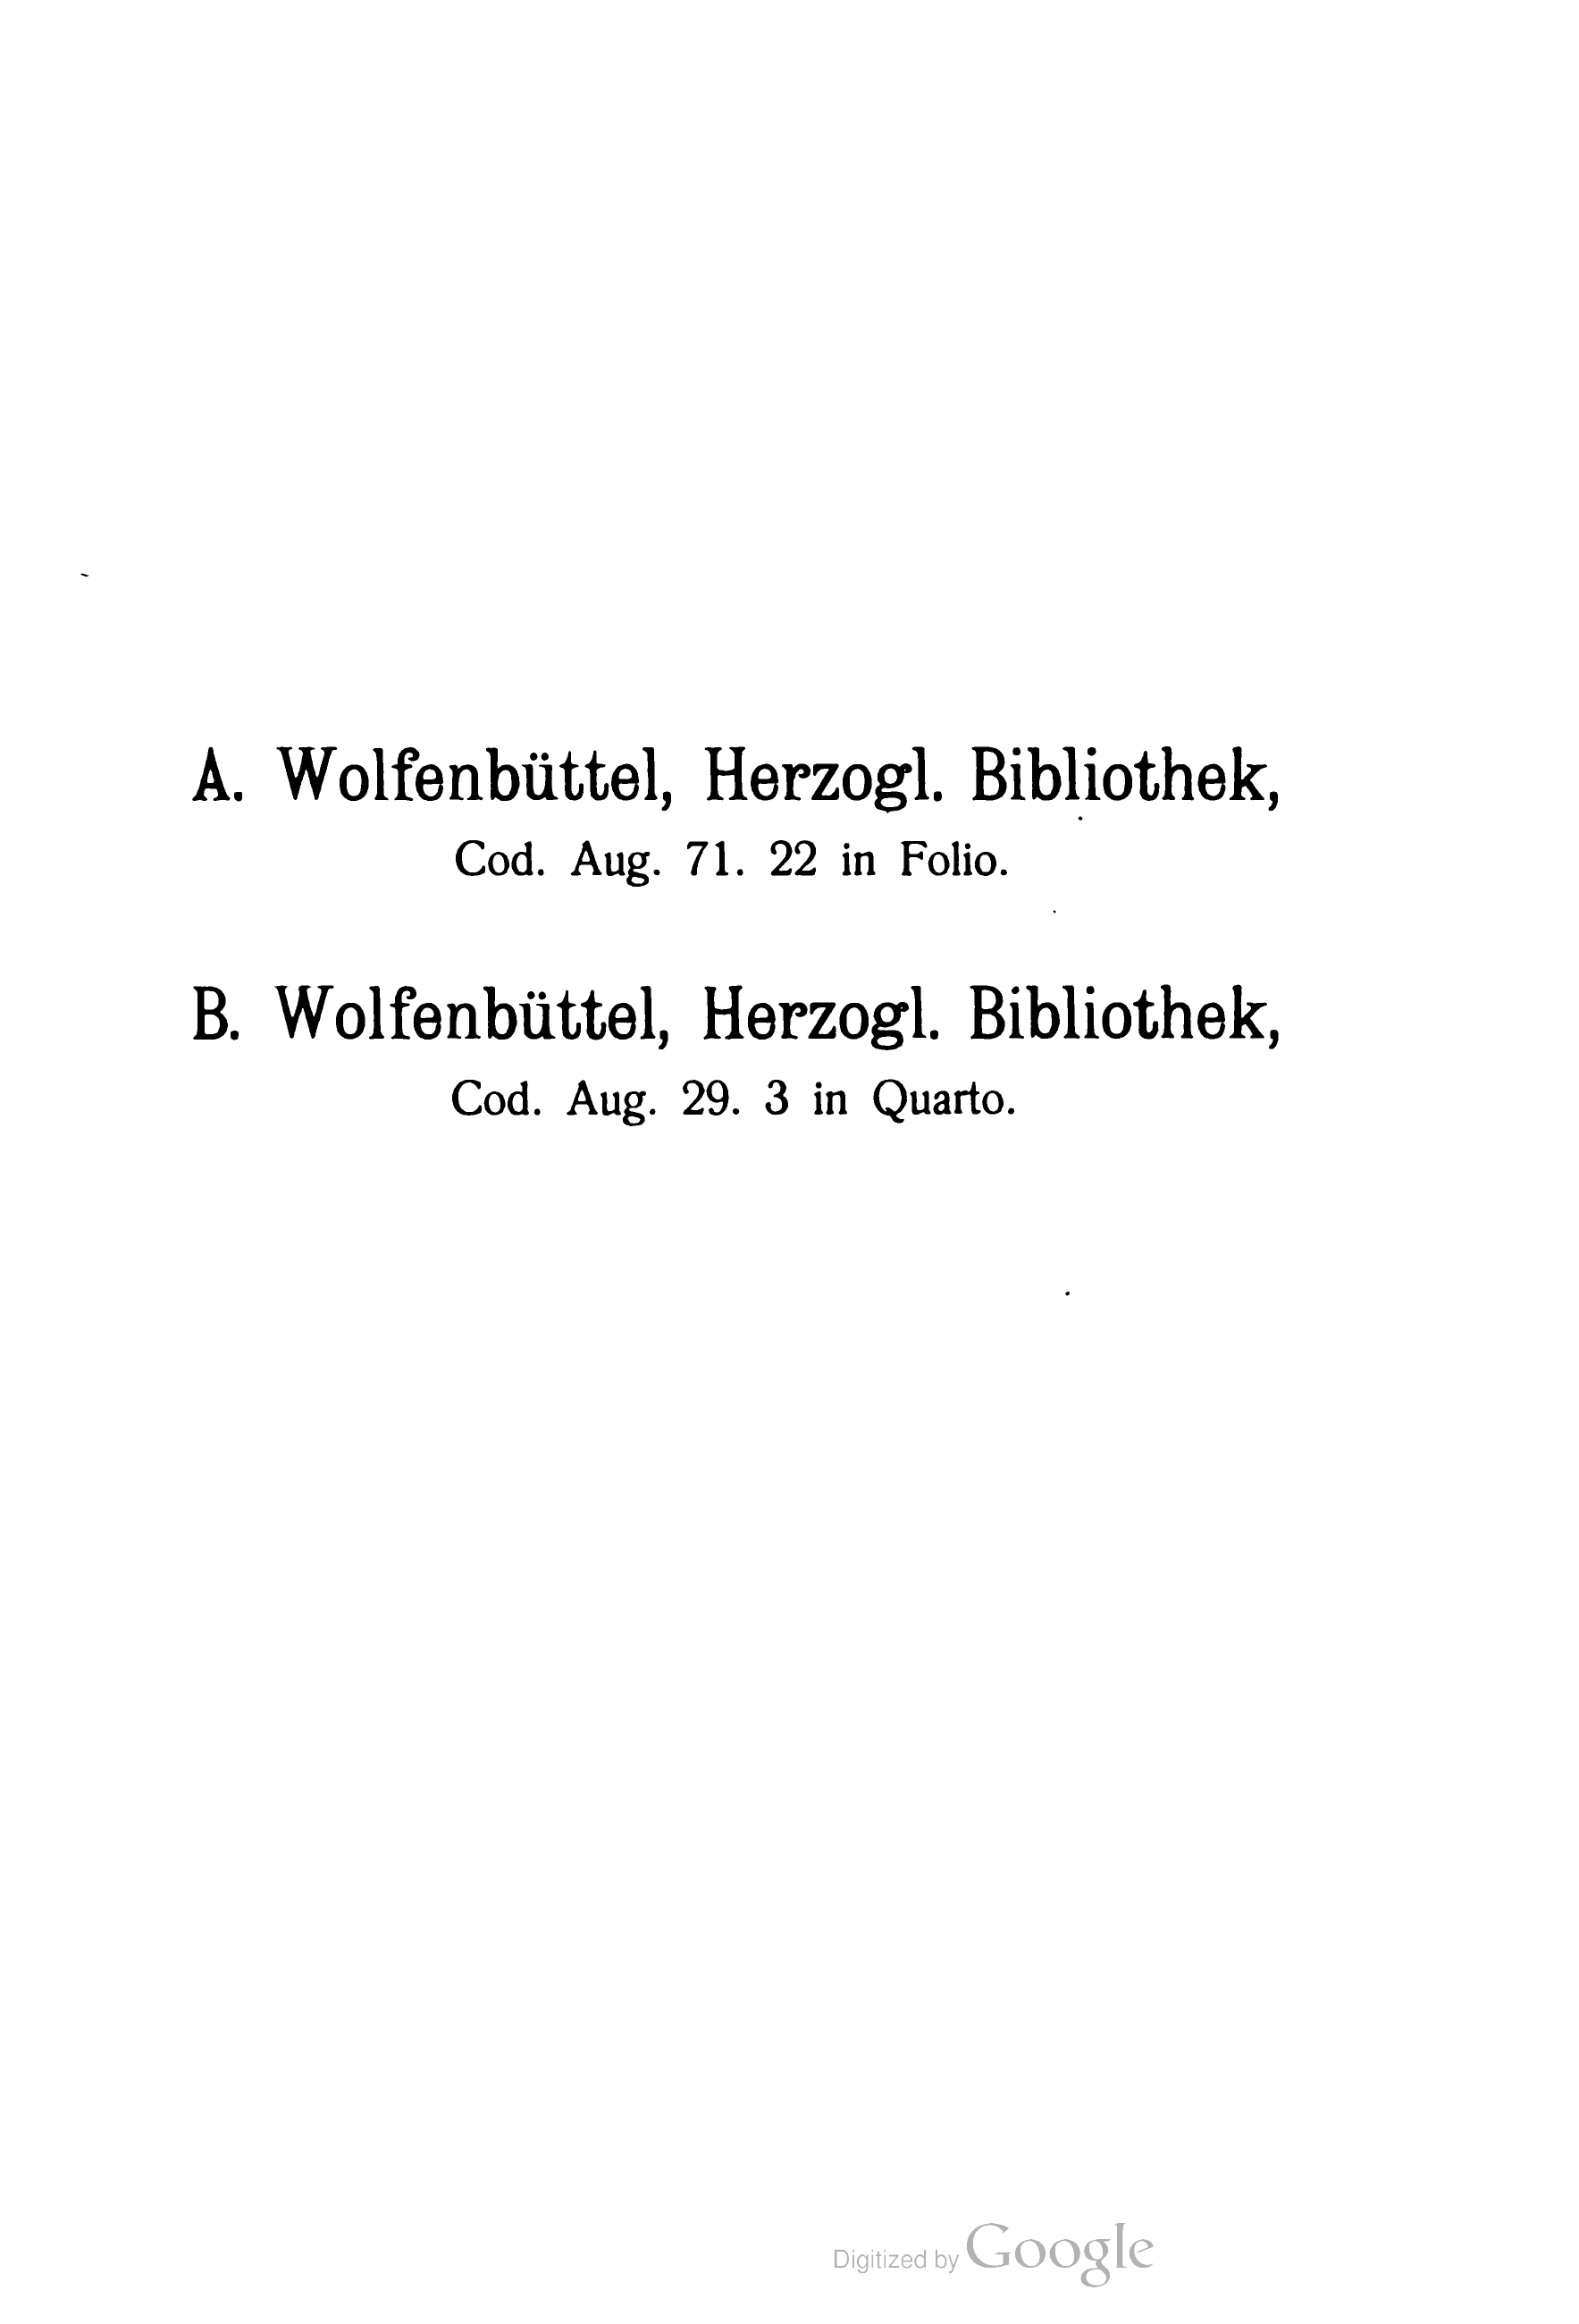 A. Wolfenbüttel, Herzogl. Bibliothek,
Cod. Aug. 71. 22 in Folio.
B. Wolfenbüttel, Herzogl. Bibliothek,
Cod. Aug. 29. 3 in Quarto.
Digitized by Google